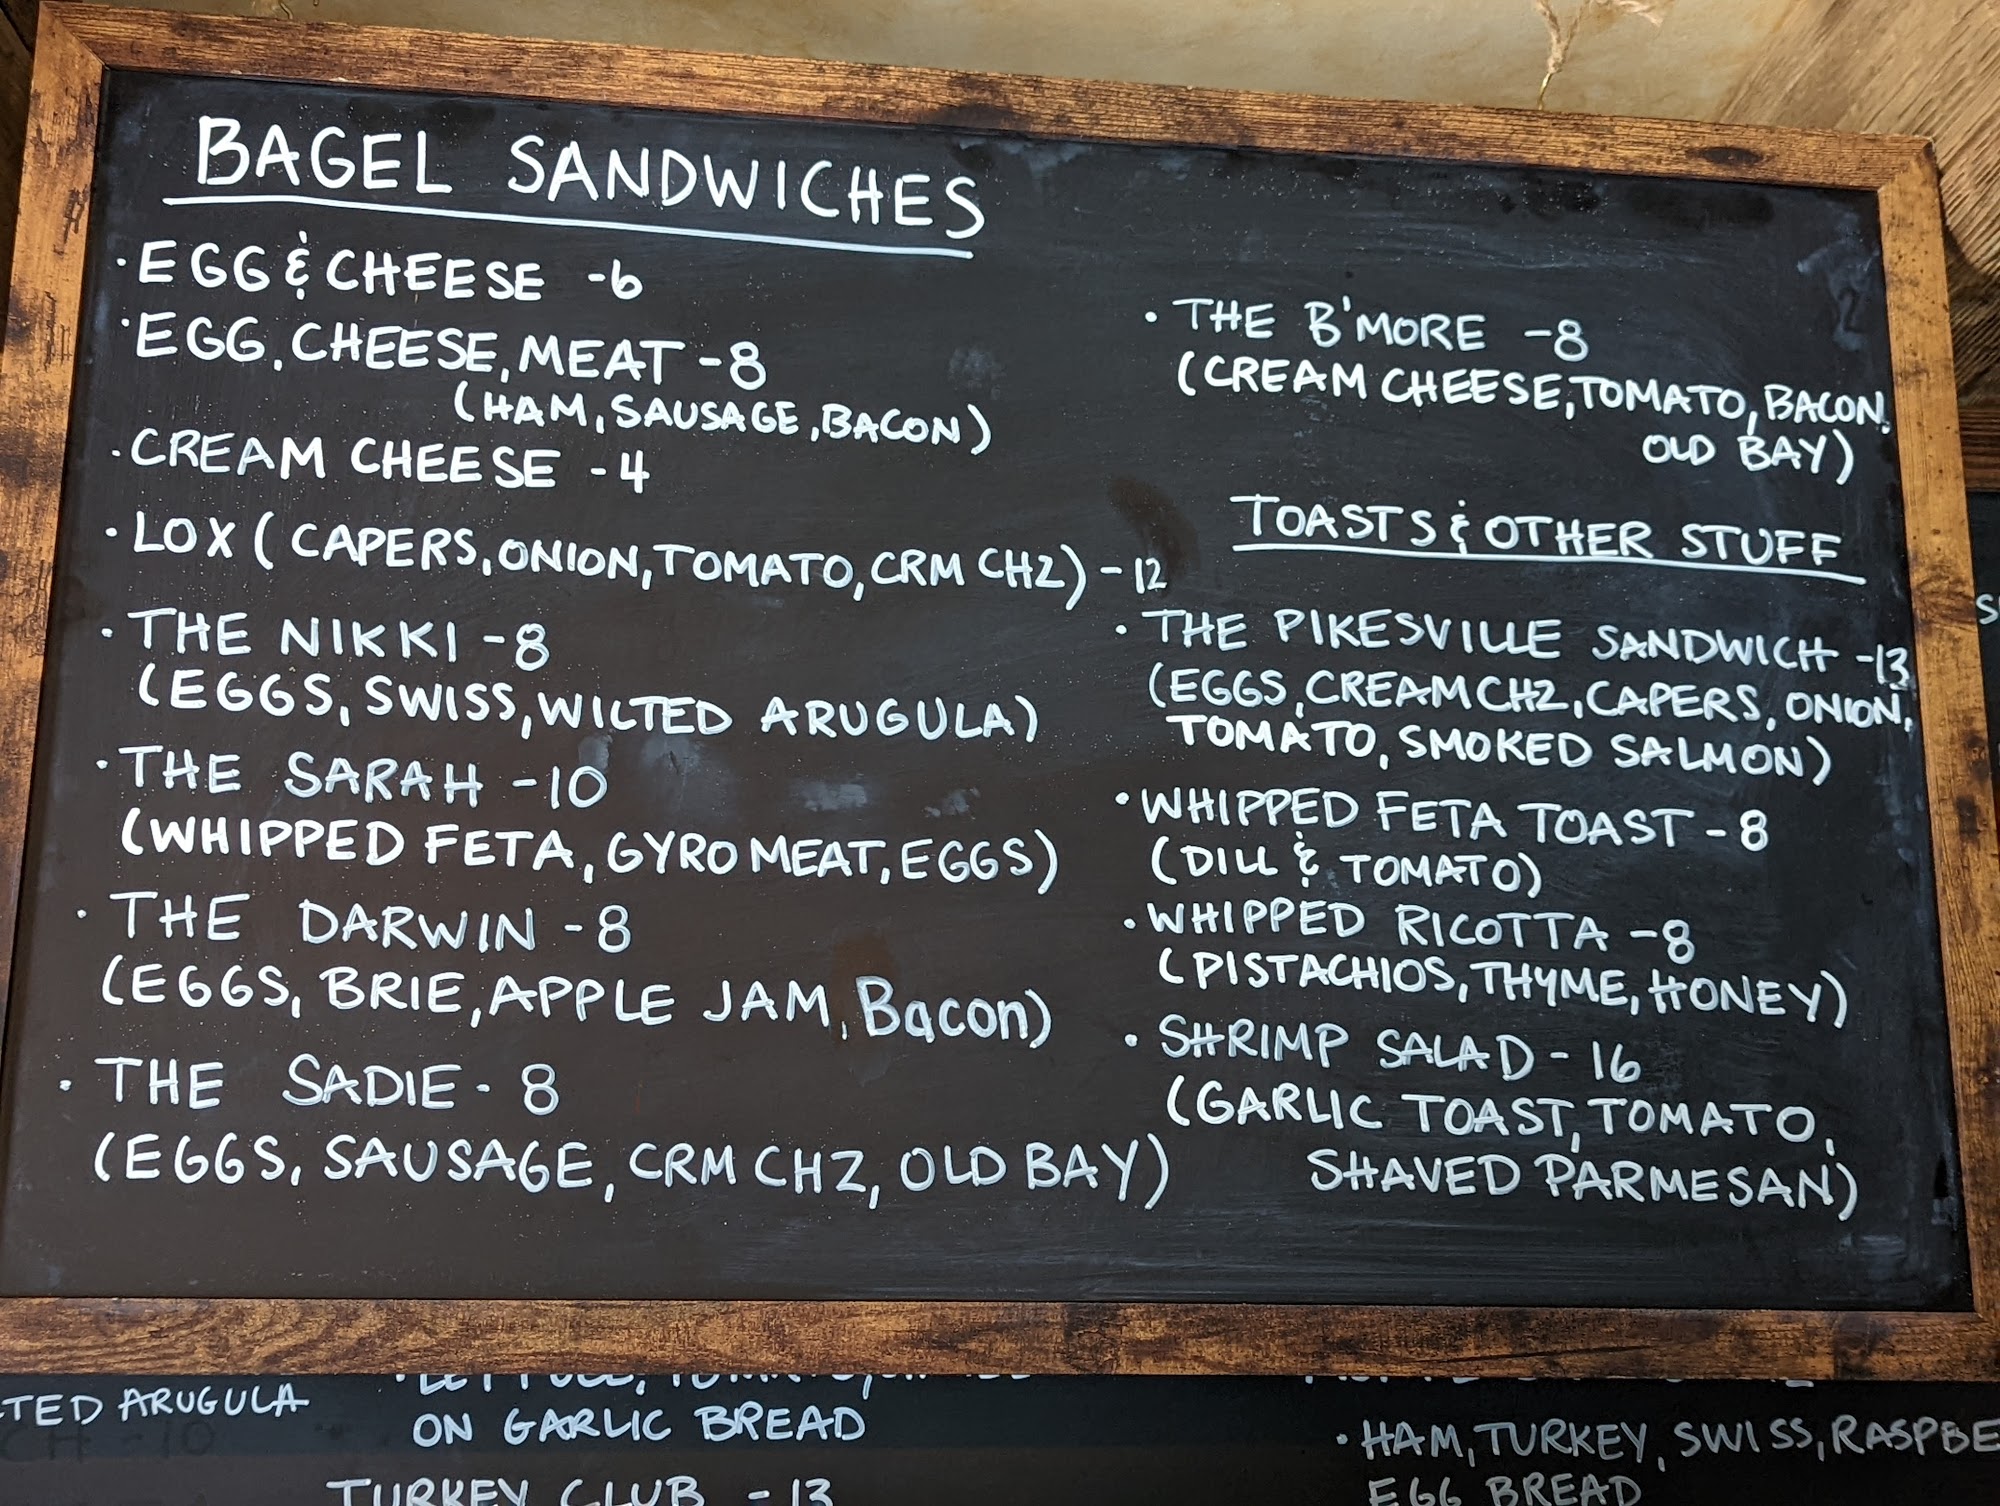 BAGEL SANDWICHES
· EGG & CHEESE -6
· EGG, CHEESE, MEAT -8
(HAM, SAUSAGE, BACON)
· CREAM CHEESE -4
· LOX (CAPERS, ONION, TOMATO, CRM CHZ) -12
· THE NIKKI -8
(EGGS, SWISS, WILTED ARUGULA)
· THE SARAH -10
(WHIPPED FETA, GYRO MEAT, EGGS)
· THE DARWIN -8
(EGGS, BRIE, APPLE JAM, Bacon)
· THE SADIE - 8
(EGGS, SAUSAGE, CRM CHZ, OLD BAY)
· THE B'MORE -8
(CREAM CHEESE, TOMATO, BACON,
OLD BAY)
TOASTS & OTHER STUFF
· THE PIKESVILLE SANDWICH -13
(EGGS, CREAM CHZ, CAPERS, ONION,
TOMATO, SMOKED SALMON)
· WHIPPED FETA TOAST -8
(DILL & TOMATO)
· WHIPPED RICOTTA -8
(PISTACHIOS, THYME, HONEY)
· SHRIMP SALAD - 16
(GARLIC TOAST, TOMATO,
SHAVED PARMESAN)
TED ARUGULA
ON GARLIC BREAD
TURKEY CLUB - 13
· HAM, TURKEY, SWISS, RASPBE
EGG BREAD